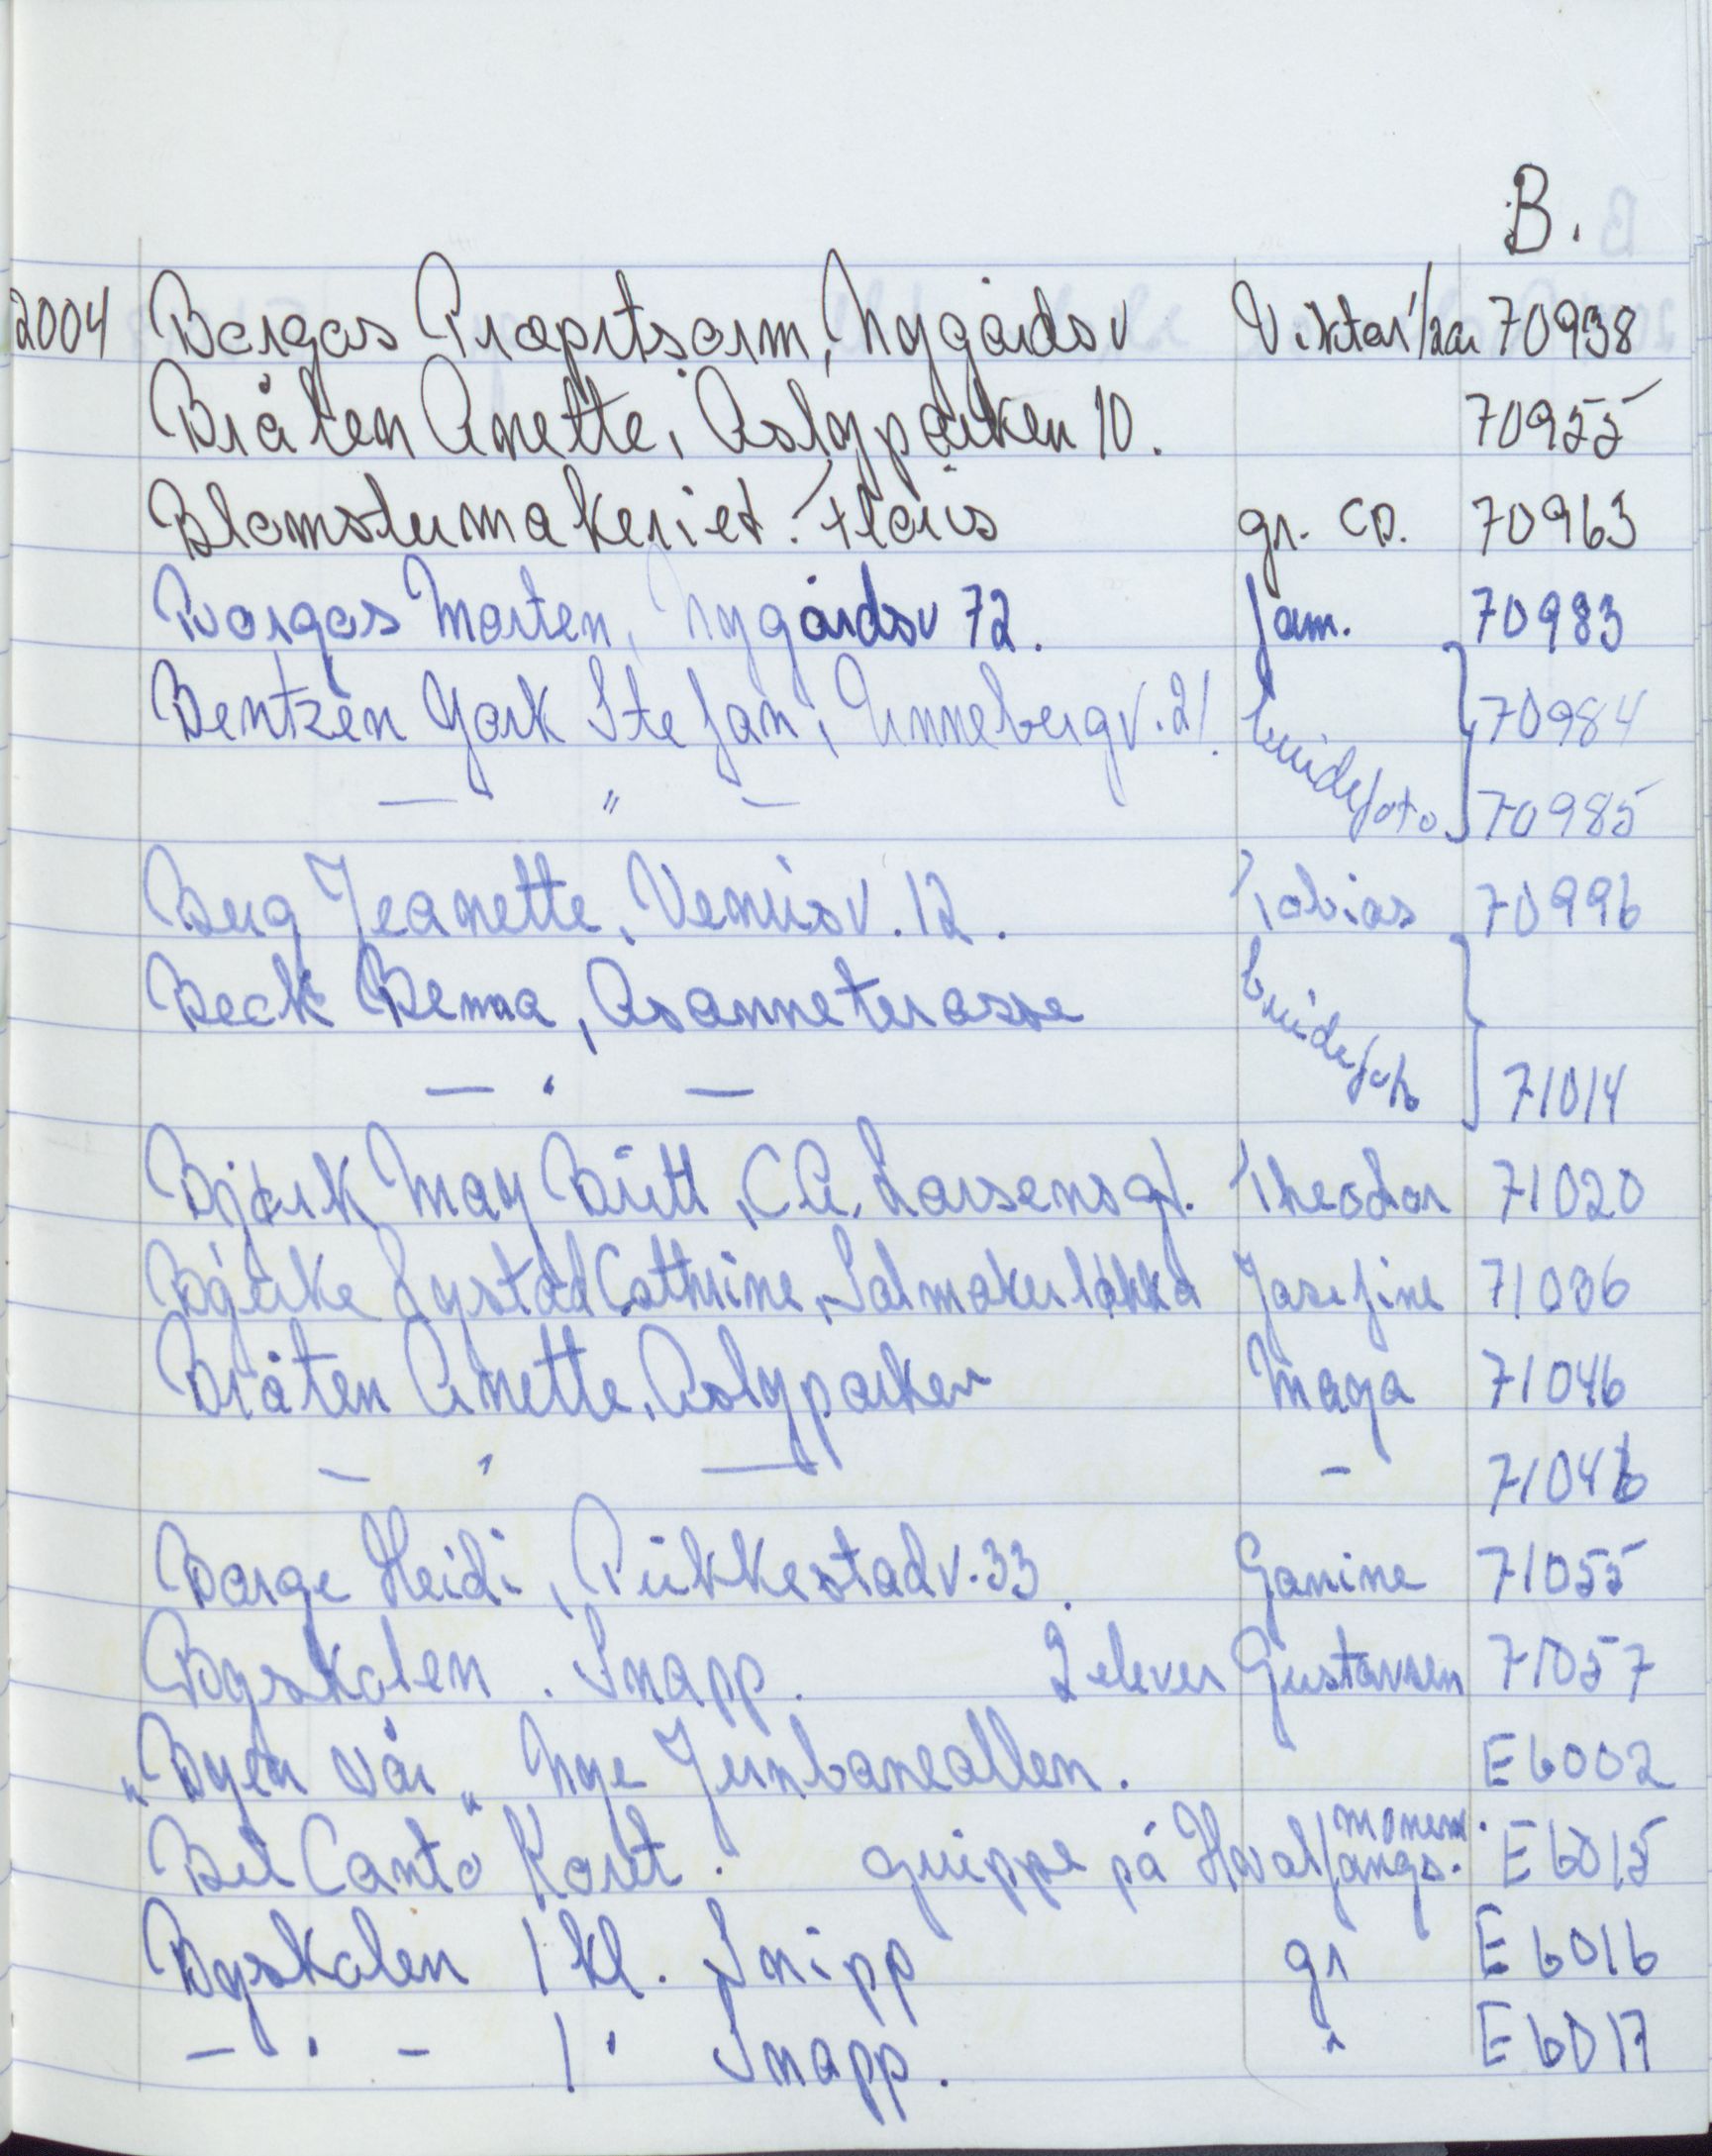 B.
2004 Borgos Propitsorm, Nygårdsv Viktor 70938
Bråten Anette, Aslyparken 10. 70955
Blomstermakeriet. Floris gr. CD. 70963
Borgos Morten, Nygårdsv 72. fam. 70983
Bentzen York Stefan, Unnebergv. 21. brudefoto 70984
— " — 70985
Berg Jeanette, Venusv. 12. Tobias 70996
Beck Benna, Åsanneterasse brudefoto
— " — 71014
Bjørk May Britt, C.A. Larsensgt. Theodor 71020
Bjerke Lystad Cathrine, Salmakerløkka Josefine 71036
Bråten Anette, Aslyparken Maya 71046
— " — - 71046
Borge Heidi, Pukkestadv. 33. Janine 71055
Byskolen. Snapp. 2 elever Gustavsen 71057
"Byen vår" Nye Jernbanealleen. E6002
Bel Canto Koret. gruppe på Hvalfangs. monem. E6015
Byskolen 1 kl. Snipp gr E6016
- " - 1 " Snapp. " E6017